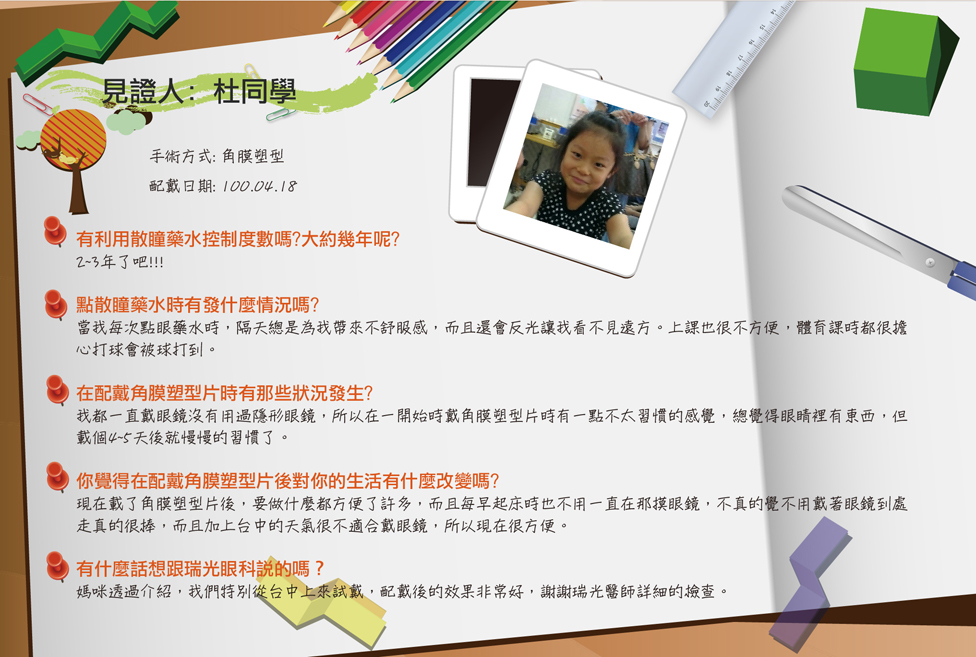 見證人：杜同學
手術方式: 角膜塑型
配戴日期: 100.04.18
有利用散瞳藥水控制度數嗎?大約幾年呢?
2~3年了吧!!!
點散瞳藥水時有發什麼情況嗎?
當我每次點眼藥水時，隔天總是為我帶來不舒服感，而且還會反光讓我看不見遠方。上課也很不方便，體育課時都很擔
心打球會被球打到。
在配戴角膜塑型片時有那些狀況發生?
我都一直戴眼鏡沒有用過隱形眼鏡，所以在一開始時戴角膜塑型片時有一點不太習慣的感覺，總覺得眼睛裡有東西，但
戴個4~5天後就慢慢的習慣了。
你覺得在配戴角膜塑型片後對你的生活有什麼改變嗎?
現在戴了角膜塑型片後，要做什麼都方便了許多，而且每早起床時也不用一直在那摸眼鏡，不真的覺不用戴著眼鏡到處
走真的很棒，而且加上台中的天氣很不適合戴眼鏡，所以現在很方便。
有什麼話想跟瑞光眼科說的嗎？
媽咪透過介紹，我們特別從台中上來試戴，配戴後的效果非常好，謝謝瑞光醫師詳細的撿查。